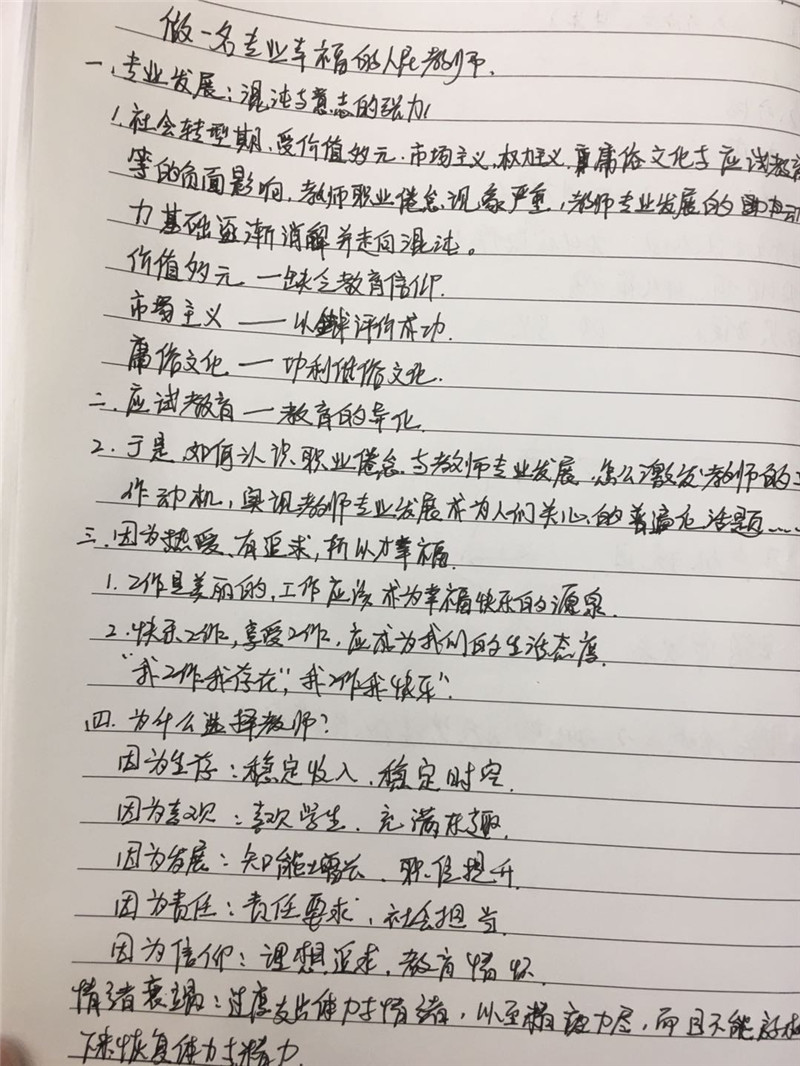 做一名专业幸福的人民教师.
一、专业发展：混沌与意志的张力
1.社会转型期、受价值多元.市场主义,权力主义,庸俗文化与应试教育
等的负面影响，教师职业倦怠现象严重，教师专业发展的动
力基础逐渐消解并走向混沌。
价值多元 — 缺乏教育信仰.
市场主义 — 以金钱评价成功.
庸俗文化 — 功利低俗文化.
二、应试教育 — 教育的异化
2.于是,如何认识职业倦怠与教师专业发展.怎么激发教师的工
作动机，实现教师专业发展成为人们关心的普遍化话题……
三.因为热爱、有追求，所以才幸福.
1.工作是美丽的,工作应该成为幸福快乐的源泉.
2.快乐工作,享受工作,应成为我们的生活态度.
“我工作我存在”,“我工作我快乐”.
四.为什么选择教师？
因为生存：稳定收入、稳定时空.
因为喜欢：喜欢学生、充满乐趣.
因为发展：知能增长、职位提升.
因为责任：责任要求、社会担当.
因为信仰：理想追求、教育情怀.
情绪衰竭：过度支出体力与情绪，以至精疲力尽，而且不能
下来恢复体力与精力.